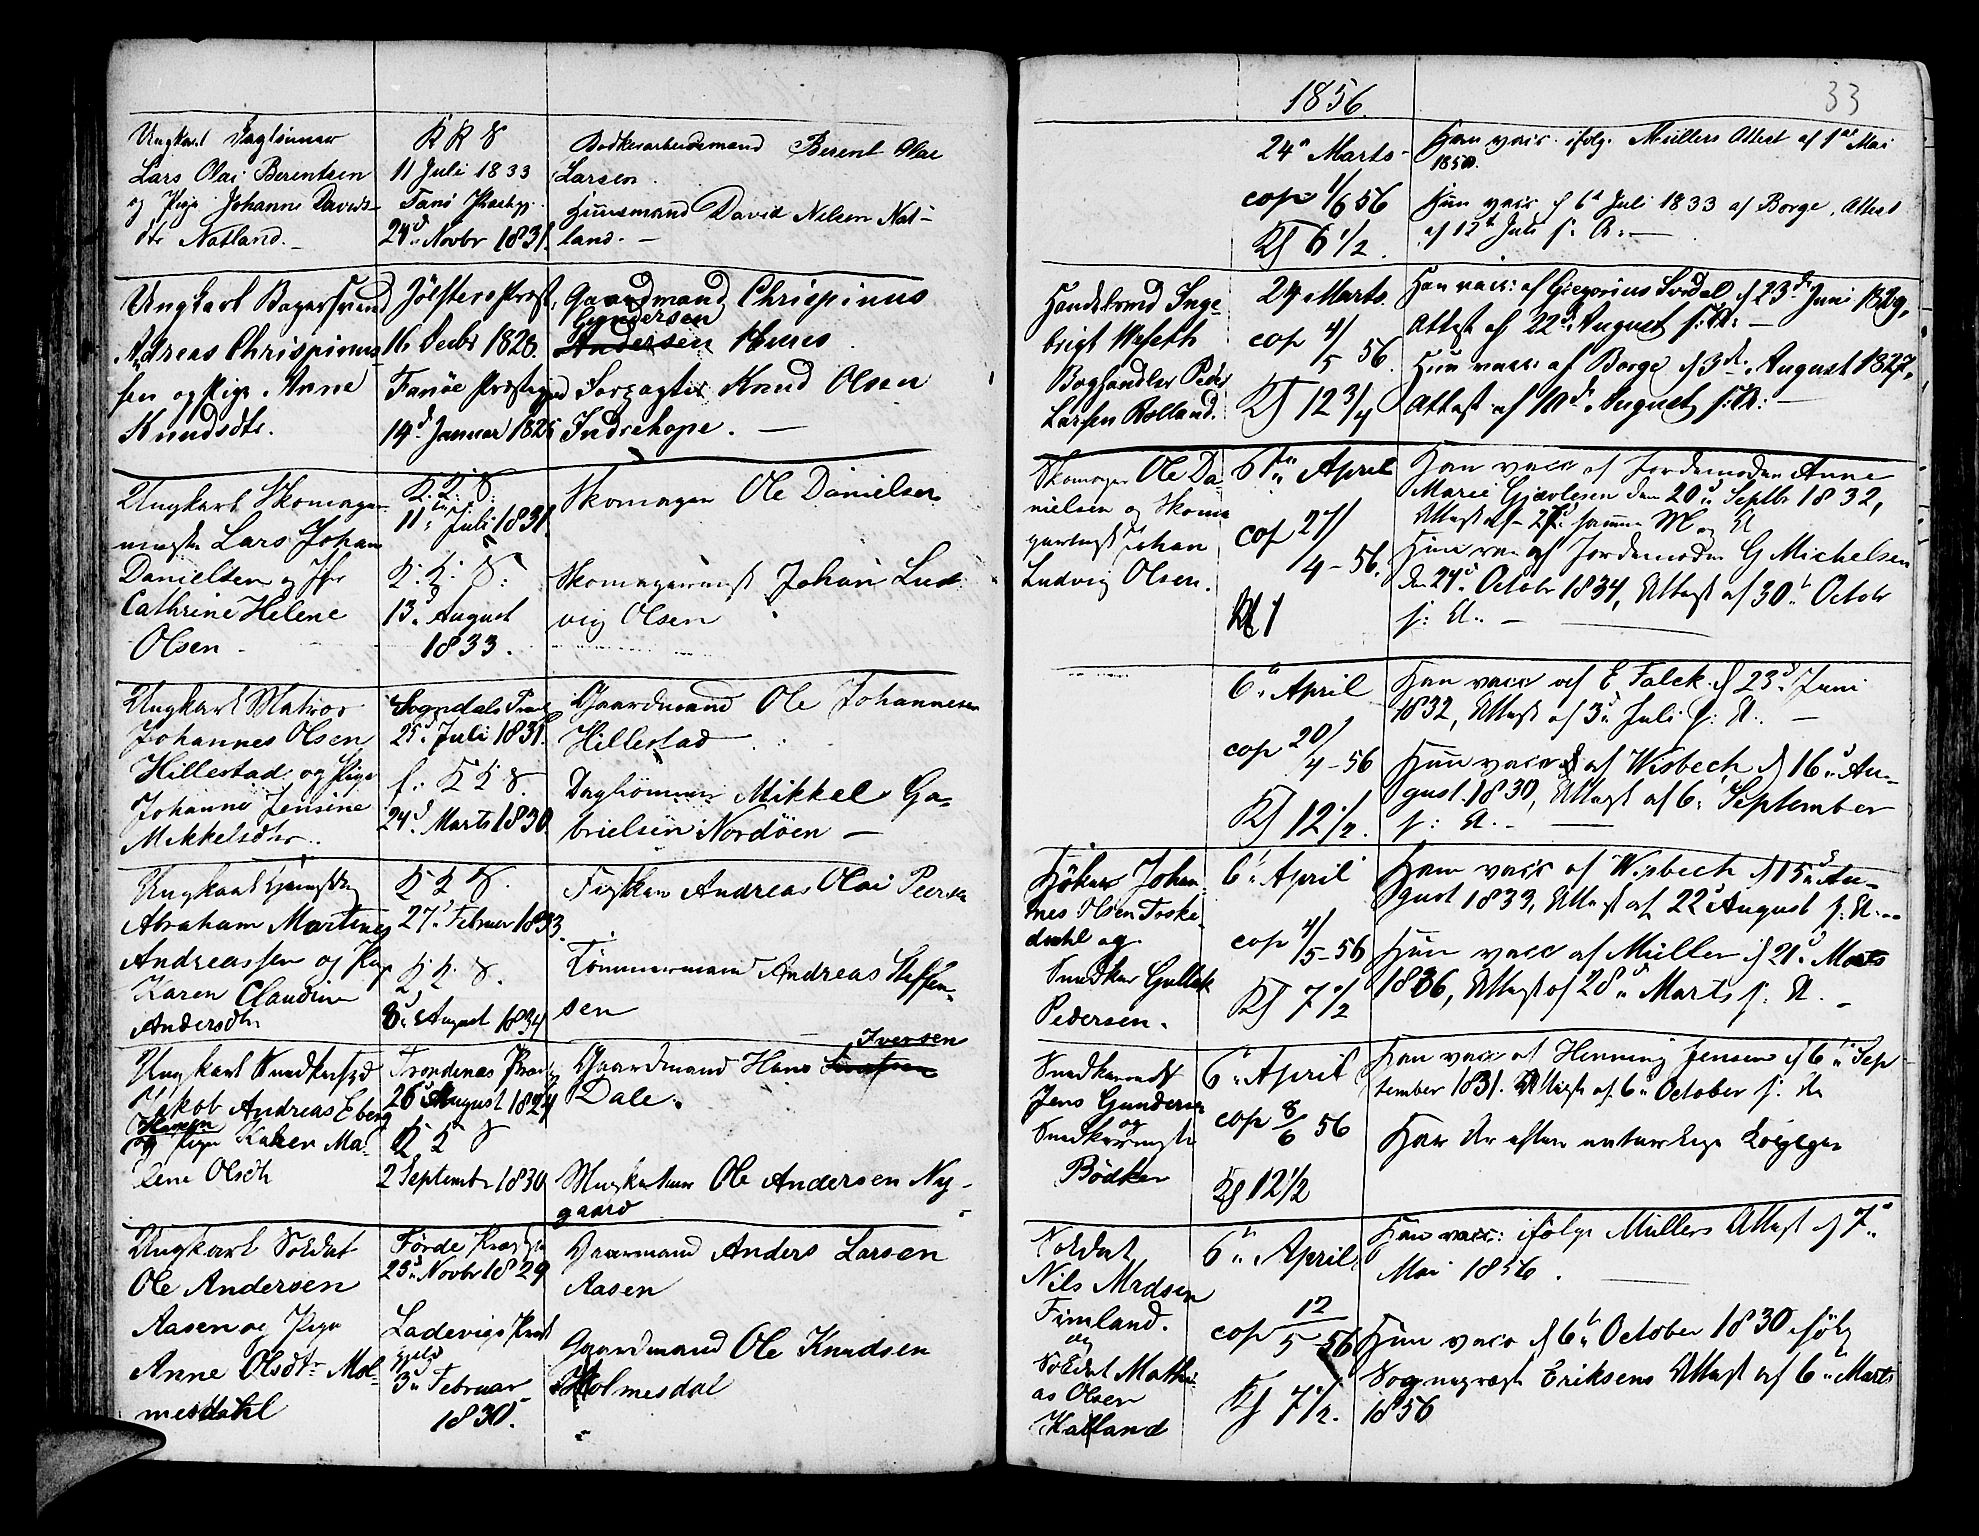 1856.
33
Ungkarl Daglønner
Lars Olai Berentsen
og Pige Johanne Davids-
dtr Natland. -
K K S
11 Juli 1833
Fanø Præstgj.
24d Novbr 1831.
Bødkerarbeidsmand Berent Olai
Larsen.
Huusmand David Nilsen Nat-
land. -
24de Marts
cop 1/6 56
Kj 6 1/2.
Han vacc. ifølge Müllers Attest af 1ste Mai
Hun vacc d 6te Juli 1833 af Borge, Attest
af 15de Juli s: A: -
Ungkarl Bagersvend
Andreas Chrispinus
sen og Pige Anne
Knudsdtr.
Jölsters Præst.
16 Decbr 1828.
Fanöe Præstegjed
14d Januar 1825
Gaardmand Chrispinus
Gundersen
Andersen Huus
Knud Olsen
Indrehope. -
Handelsmd Inge-
brigt
Boghandler Peder
Larsen Rolland.
24 Marts.
cop 4/5 56.
Kj 12 3/4
Han vacc: af Gregorius Svedal d 23de Juni 1829,
Attest af 22d August s: A: -
Hun vacc: af Borge d 3de August 1827,
Attest af 10d August s: A: -
Ungkarl Skomager
mester Lars Johan
Danielsen og Pige
Cathrine Helene
Olsen -
K. K: S:
11te Juli 1831.
K: K: S:
13d August
1833.
Skomager Ole Danielsen
Skomagermest Johan Lud
vig Olsen
Skomager Ole Da-
nielsen og Skoma
germest Johan
Ludvig Olsen.
6te April
cop 27/4 - 56.
Han vacc af Jordemoder Anne
Marie Gjertsen den 20d Septbr 1832,
Attest af 27d samme M og A
Hun vacc af Jordemoder G Michelsen
den 24d October 1834, Attest af 30te Octobr
s: A. -
Ungkarl Matros
Johannes Olsen
Hillestad og Pige
Johanne Jensine
Mikkelsdtr..
Sogndals Præst
25d Juli 1831.
f: K K S.
24d Marts 1830
Gaardmand Ole Johannesen
Hillestad
Daglönner Mikkel Ga-
brielsen Nordöen -
6te April
cop 20/4 - 56
Kj 12 1/2.
Han vacc af E Falck d 23d Juni
1832, Attest af 3d Juli s: A. -
Hun vacc af Wisbech d 16d Au-
gust 1830, Attest af 6te September
s: A. -
Ungkarl
Abraham Martinus
Andreassen og Pige
Karen Claudine
Andersdtr
K K S.
27de Februar 1833.
K K S.
8d August 1834
Fisker Andreas Olai Peersen
Tömmermand Andreas Steffen-
sen
Johan-
nes Olsen Toske-
dahl og
Snedker Gullak
Pedersen.
6te April
cop 4/5 - 56
Kj 7 1/2
Han vacc af Wisbech d 15d Au-
gust 1833, Attest af 22d August s: A. -
Hun vacc af Müller d 21d Marts
1836, Attest af 28d Marts s: A. -
Ungkarl Snedkersvd
Jakob Andreas Eberg
Hansen
og Pige Karen Ma-
lene Olsdtr
Trondenes Præstg
26d August 1824
K K S
2 Septembr 1830
Iversen
Gaardmand Hans
Dale.
Ole Andersen Ny-
gaard
Snedkersvd
Jens Gundersen
og
Snedkermester
Bödker
6te April
cop 8/6 56
Kj 12 1/2
Han vacc af Henning Jensen d 6te Sep
tember 1831. Attest af 6te October s: A
Har de efter naturlige Kopper
Ungkarl Soldat
Ole Andersen
Aasen og Pige
Anne Olsdtr Mol-
mesdahl
Förde Præstg
25d Novbr 1829
Ladevigs Præst
gjeld
3d Februar
1830.
Gaardmand Anders Larsen
Aasen
Gaardmand Ole Knudsen
Holmesdal
Soldat
Nils Madsen
Fimland.
og
Soldat Mathi-
as Olsen
Katland
6te April
cop 12/5 56
Kj 7 1/2.
Han vacc: ifölge Müllers Attest d 7de
Mai 1856.
Hun vacc d 6te October 1830 ifölg
Sognepræst Eriksens Attest af 6te Marts
1856